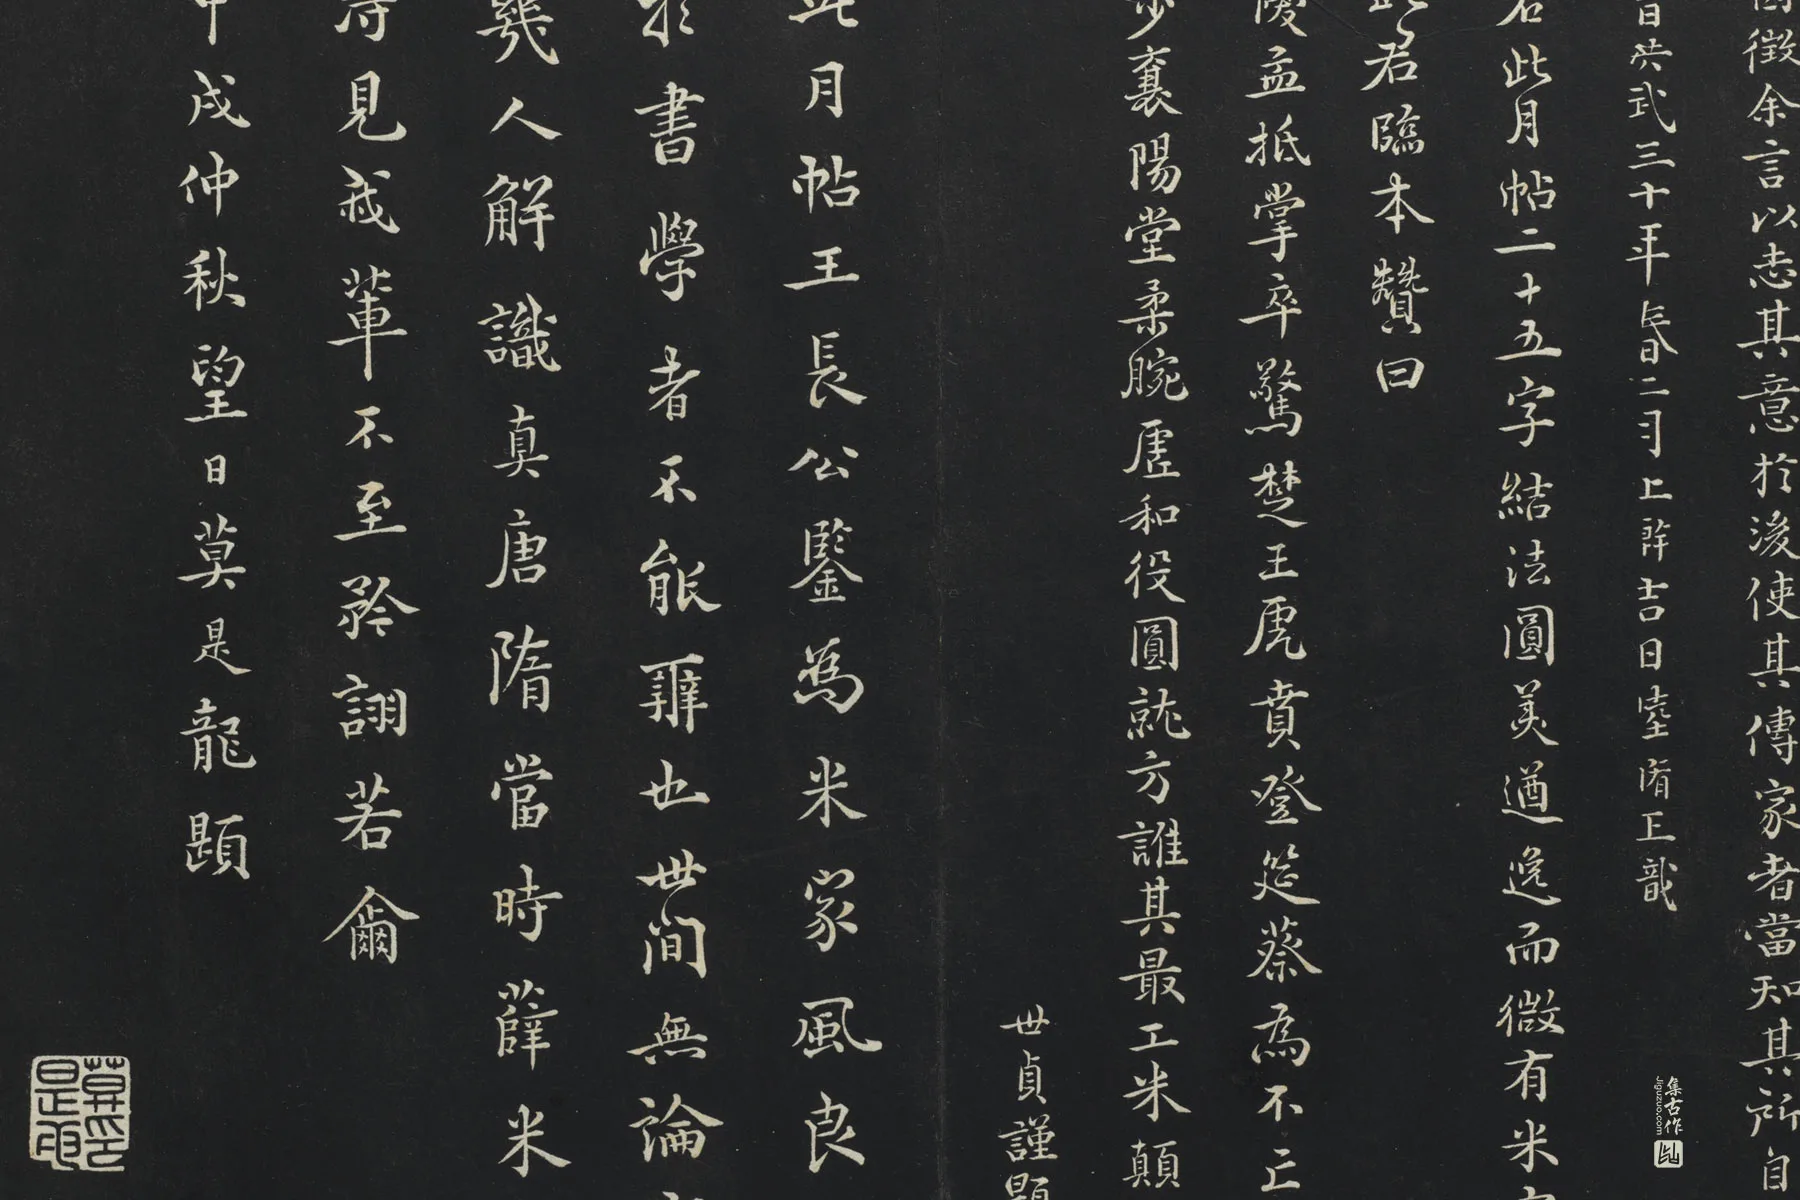 徵余言以志其意於後使其傳家者當知其所自
洪武三十年春二月上澣吉日
此月帖二十五字結法圓美遒逸而微有米
君臨本贊曰
孟抵掌卒驚楚王虎賁登筵蔡為不亡
步襄陽堂柔腕虛和役圓就方誰其最工米顛
世貞謹題
此月帖王長公鑒為米家風良
書學者不能辨也世間無論
幾人解識真唐隋當時薛米
見我輩不至矜詡若爾
戌仲秋望日莫是龍題
莫是龍印
集古作
jiguzuo.com